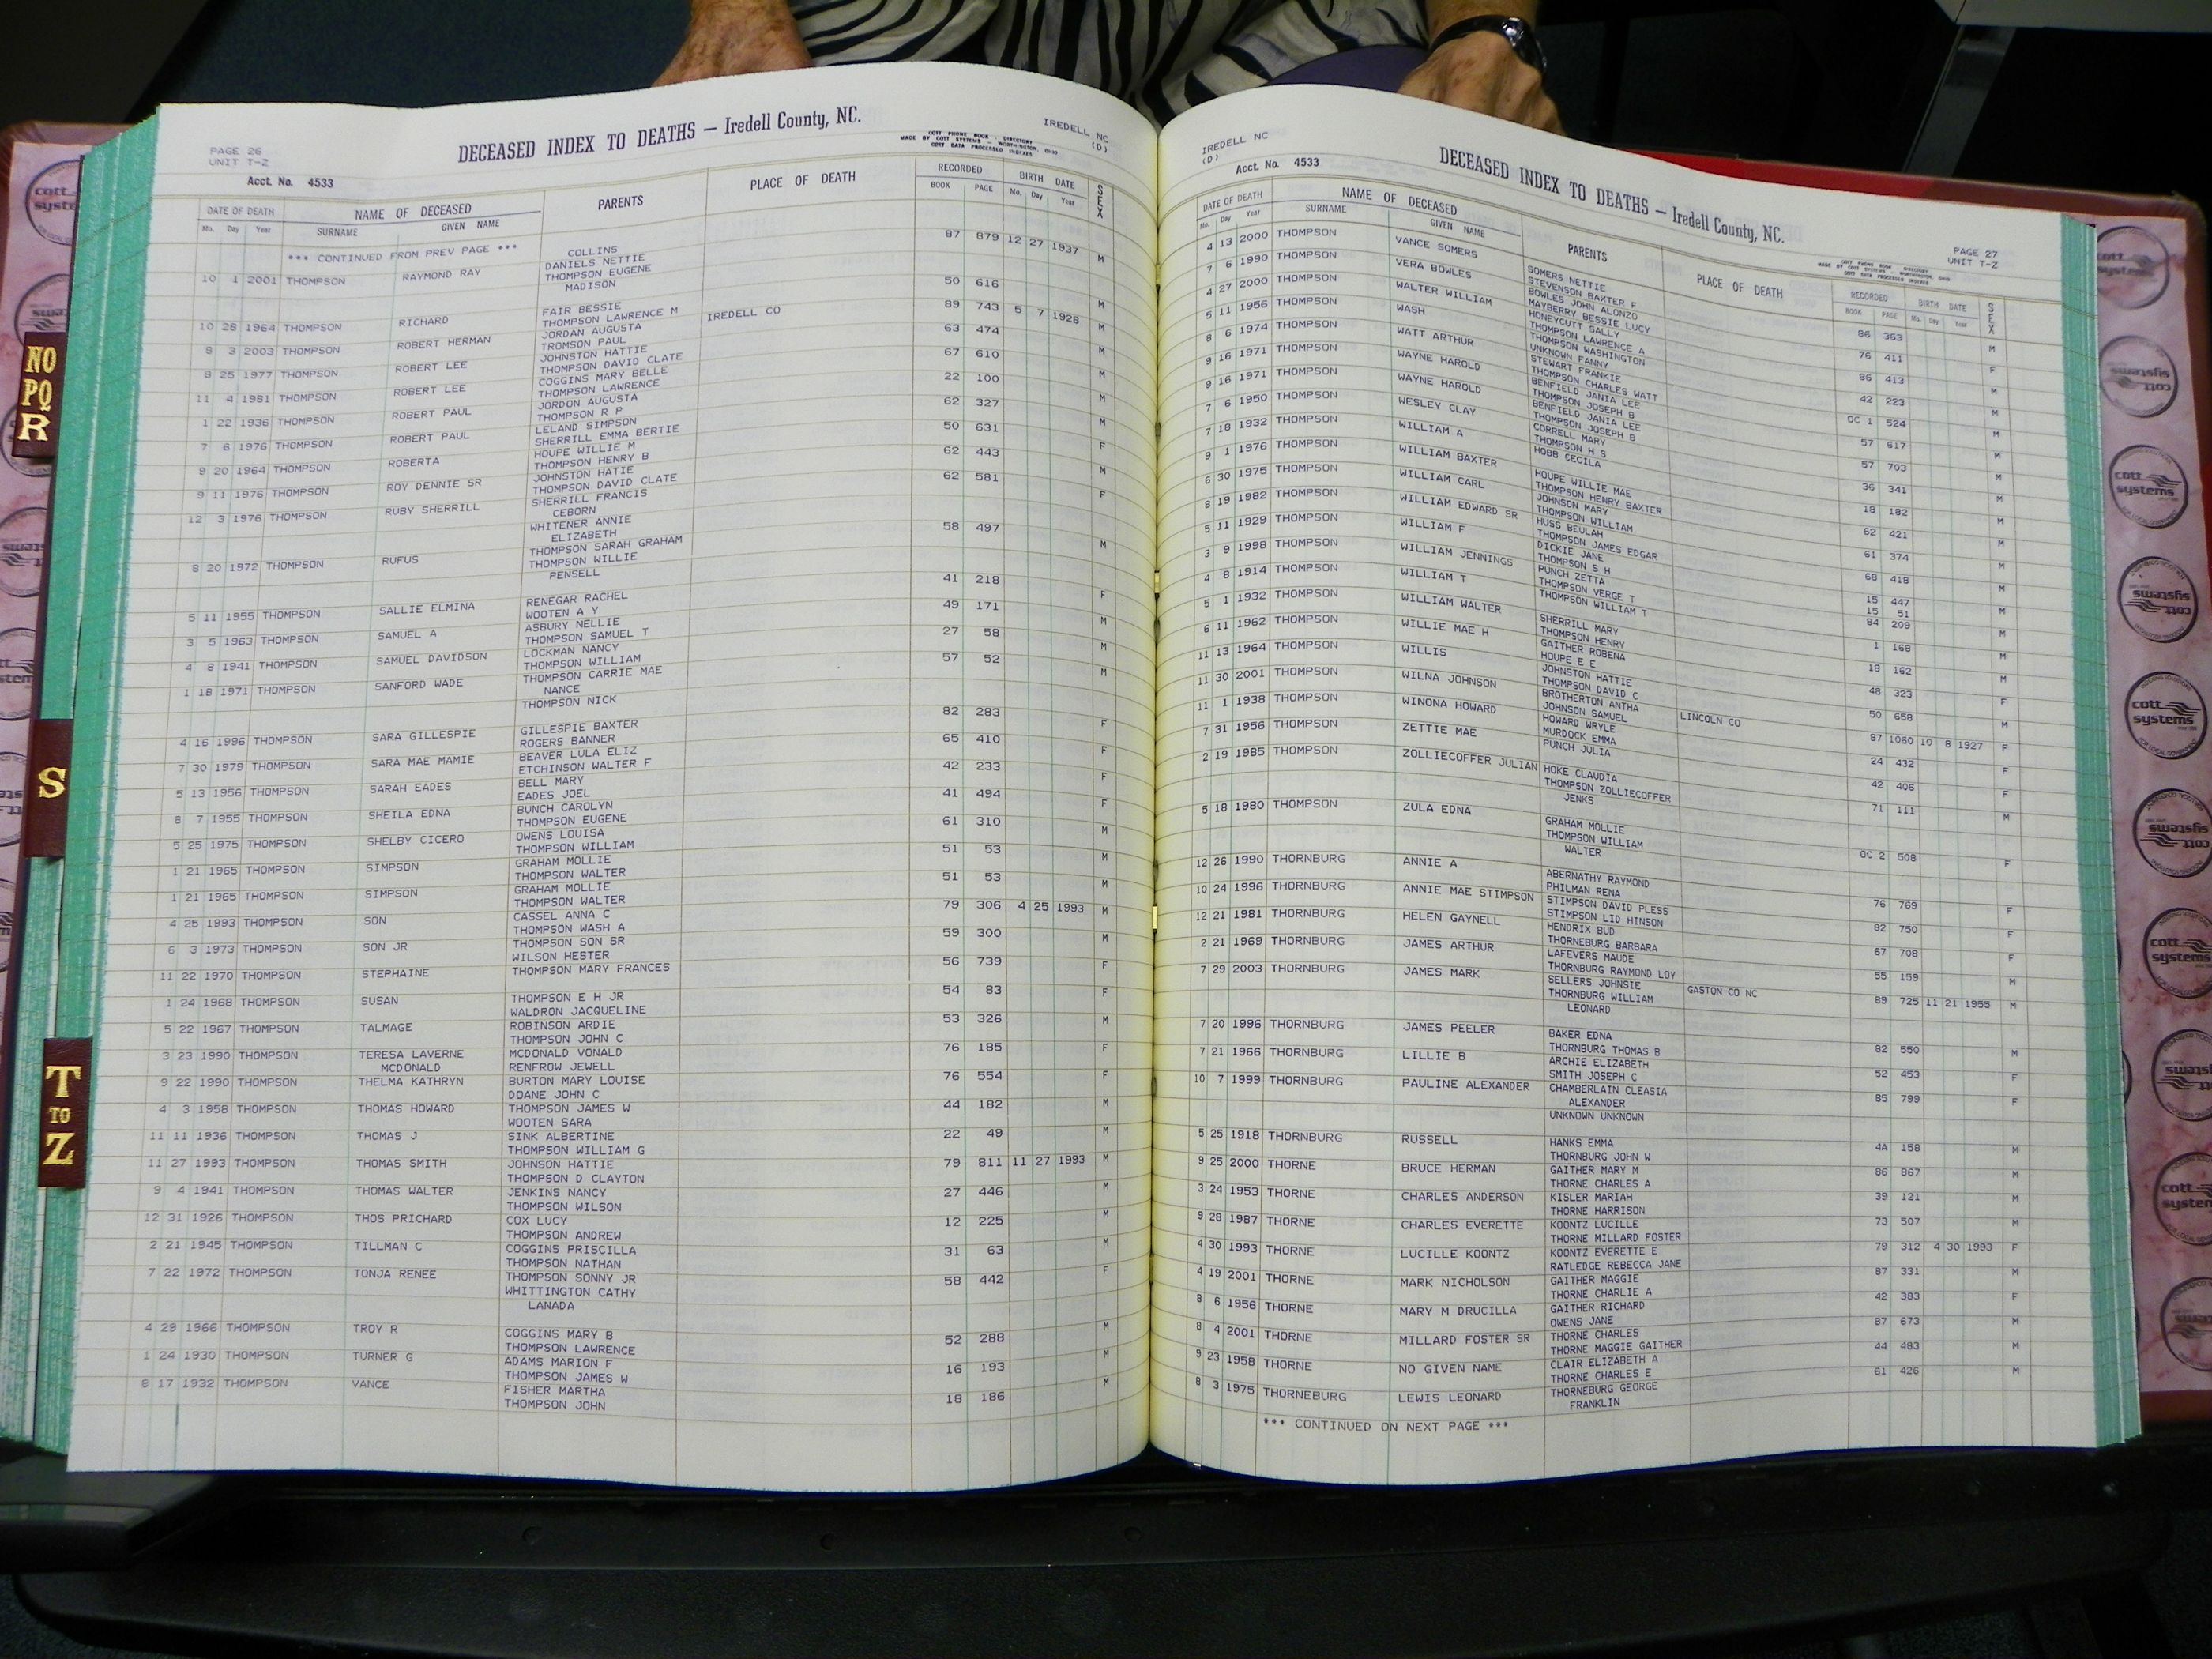 PAGE 26
UNIT T-Z
DECEASED INDEX TO DEATHS — Iredell County, NC.
COTT PHONE BOOK - DIRECTORY
MADE BY COTT SYSTEMS - WORTHINGTON, OHIO
COTT DATA PROCESSED INDEXES
IREDELL NC
(D)
Acct. No. 4533
DATE OF DEATH NAME OF DECEASED PARENTS PLACE OF DEATH RECORDED BIRTH DATE SEX
Mo. Day Year SURNAME GIVEN NAME BOOK PAGE Mo. Day Year
*** CONTINUED FROM PREV PAGE ***
10 1 2001 THOMPSON RAYMOND RAY COLLINS 87 879 12 27 1937 M
DANIELS NETTIE
THOMPSON EUGENE
MADISON
10 28 1964 THOMPSON RICHARD FAIR BESSIE 50 616 M
THOMPSON LAWRENCE M
8 3 2003 THOMPSON ROBERT HERMAN JORDAN AUGUSTA IREDELL CO 89 743 5 7 1928 M
TROMSON PAUL
8 25 1977 THOMPSON ROBERT LEE JOHNSTON HATTIE 63 474 M
THOMPSON DAVID CLATE
11 4 1981 THOMPSON ROBERT LEE COGGINS MARY BELLE 67 610 M
THOMPSON LAWRENCE
1 22 1936 THOMPSON ROBERT PAUL JORDON AUGUSTA 22 100 M
THOMPSON R P
7 6 1976 THOMPSON ROBERT PAUL LELAND SIMPSON 62 327 M
SHERRILL EMMA BERTIE
9 20 1964 THOMPSON ROBERTA HOUPE WILLIE M 50 631 F
THOMPSON HENRY B
9 11 1976 THOMPSON ROY DENNIE SR JOHNSTON HATIE 62 443 M
THOMPSON DAVID CLATE
12 3 1976 THOMPSON RUBY SHERRILL SHERRILL FRANCIS 62 581 F
CEBORN
WHITENER ANNIE
ELIZABETH
8 20 1972 THOMPSON RUFUS THOMPSON SARAH GRAHAM 58 497 M
THOMPSON WILLIE
PENSELL
5 11 1955 THOMPSON SALLIE ELMINA RENEGAR RACHEL 41 218 F
WOOTEN A Y
3 5 1963 THOMPSON SAMUEL A ASBURY NELLIE 49 171 M
THOMPSON SAMUEL T
4 8 1941 THOMPSON SAMUEL DAVIDSON LOCKMAN NANCY 27 58 M
THOMPSON WILLIAM
1 18 1971 THOMPSON SANFORD WADE THOMPSON CARRIE MAE 57 52 M
NANCE
THOMPSON NICK
4 16 1996 THOMPSON SARA GILLESPIE GILLESPIE BAXTER 82 283 F
ROGERS BANNER
7 30 1979 THOMPSON SARA MAE MAMIE BEAVER LULA ELIZ 65 410 F
ETCHINSON WALTER F
5 13 1956 THOMPSON SARAH EADES BELL MARY 42 233 F
EADES JOEL
8 7 1955 THOMPSON SHEILA EDNA BUNCH CAROLYN 41 494 F
THOMPSON EUGENE
5 25 1975 THOMPSON SHELBY CICERO OWENS LOUISA 61 310 M
THOMPSON WILLIAM
1 21 1965 THOMPSON SIMPSON GRAHAM MOLLIE 51 53 M
THOMPSON WALTER
1 21 1965 THOMPSON SIMPSON GRAHAM MOLLIE 51 53 M
THOMPSON WALTER
4 25 1993 THOMPSON SON CASSEL ANNA C 79 306 4 25 1993 M
THOMPSON WASH A
6 3 1973 THOMPSON SON JR THOMPSON SON SR 59 300 M
WILSON HESTER
11 22 1970 THOMPSON STEPHAINE THOMPSON MARY FRANCES 56 739 F
1 24 1968 THOMPSON SUSAN THOMPSON E H JR 54 83 F
WALDRON JACQUELINE
5 22 1967 THOMPSON TALMAGE ROBINSON ARDIE 53 326 M
THOMPSON JOHN C
3 23 1990 THOMPSON TERESA LAVERNE MCDONALD VONALD 76 185 F
MCDONALD RENFROW JEWELL
9 22 1990 THOMPSON THELMA KATHRYN BURTON MARY LOUISE 76 554 F
DOANE JOHN C
4 3 1958 THOMPSON THOMAS HOWARD THOMPSON JAMES W 44 182 M
WOOTEN SARA
11 11 1936 THOMPSON THOMAS J SINK ALBERTINE 22 49 M
THOMPSON WILLIAM G
11 27 1993 THOMPSON THOMAS SMITH JOHNSON HATTIE 79 811 11 27 1993 M
THOMPSON D CLAYTON
9 4 1941 THOMPSON THOMAS WALTER JENKINS NANCY 27 446 M
THOMPSON WILSON
12 31 1926 THOMPSON THOS PRICHARD COX LUCY 12 225 M
THOMPSON ANDREW
2 21 1945 THOMPSON TILLMAN C COGGINS PRISCILLA 31 63 M
THOMPSON NATHAN
7 22 1972 THOMPSON TONJA RENEE THOMPSON SONNY JR 58 442 F
WHITTINGTON CATHY
LANADA
4 29 1966 THOMPSON TROY R COGGINS MARY B 52 288 M
THOMPSON LAWRENCE
1 24 1930 THOMPSON TURNER G ADAMS MARION F 16 193 M
THOMPSON JAMES W
8 17 1932 THOMPSON VANCE FISHER MARTHA 18 186 M
THOMPSON JOHN
IREDELL NC
(D)
Acct. No. 4533
DECEASED INDEX TO DEATHS — Iredell County, NC.
PAGE 27
UNIT T-Z
COTT PHONE BOOK - DIRECTORY
MADE BY COTT SYSTEMS - WORTHINGTON, OHIO
COTT DATA PROCESSED INDEXES
DATE OF DEATH NAME OF DECEASED PARENTS PLACE OF DEATH RECORDED BIRTH DATE SEX
Mo. Day Year SURNAME GIVEN NAME BOOK PAGE Mo. Day Year
4 13 2000 THOMPSON VANCE SOMERS SOMERS NETTIE 86 363 M
STEVENSON BAXTER F
7 6 1990 THOMPSON VERA BOWLES BOWLES JOHN ALONZO 76 411 F
MAYBERRY BESSIE LUCY
4 27 2000 THOMPSON WALTER WILLIAM HONEYCUTT SALLY 86 413 M
THOMPSON LAWRENCE A
5 11 1956 THOMPSON WASH THOMPSON WASHINGTON 42 223 M
UNKNOWN FANNY
8 6 1974 THOMPSON WATT ARTHUR STEWART FRANKIE OC 1 524 M
THOMPSON CHARLES WATT
9 16 1971 THOMPSON WAYNE HAROLD BENFIELD JANIA LEE 57 617 M
THOMPSON JOSEPH B
9 16 1971 THOMPSON WAYNE HAROLD BENFIELD JANIA LEE 57 703 M
THOMPSON JOSEPH B
7 6 1950 THOMPSON WESLEY CLAY CORRELL MARY 36 341 M
THOMPSON H S
7 18 1932 THOMPSON WILLIAM A HOBB CECILA 18 182 M
9 1 1976 THOMPSON WILLIAM BAXTER HOUPE WILLIE MAE 62 421 M
THOMPSON HENRY BAXTER
6 30 1975 THOMPSON WILLIAM CARL JOHNSON MARY 61 374 M
THOMPSON WILLIAM
8 19 1982 THOMPSON WILLIAM EDWARD SR HUSS BEULAH 68 418 M
THOMPSON JAMES EDGAR
5 11 1929 THOMPSON WILLIAM F DICKIE JANE 15 447 M
THOMPSON S H 15 51
3 9 1998 THOMPSON WILLIAM JENNINGS PUNCH ZETTA 84 209 M
THOMPSON VERGE T
4 8 1914 THOMPSON WILLIAM T THOMPSON WILLIAM T 1 168 M
5 1 1932 THOMPSON WILLIAM WALTER SHERRILL MARY 18 162 M
THOMPSON HENRY
6 11 1962 THOMPSON WILLIE MAE H GAITHER ROBENA 48 323 F
HOUPE E E
11 13 1964 THOMPSON WILLIS JOHNSTON HATTIE 50 658 M
THOMPSON DAVID C
11 30 2001 THOMPSON WILNA JOHNSON BROTHERTON ANTHA LINCOLN CO 87 1060 10 8 1927 F
JOHNSON SAMUEL
11 1 1938 THOMPSON WINONA HOWARD HOWARD WRYLE 24 432 F
MURDOCK EMMA
7 31 1956 THOMPSON ZETTIE MAE PUNCH JULIA 42 406 F
2 19 1985 THOMPSON ZOLLIECOFFER JULIAN HOKE CLAUDIA 71 111 M
THOMPSON ZOLLIECOFFER
JENKS
5 18 1980 THOMPSON ZULA EDNA GRAHAM MOLLIE OC 2 508 F
THOMPSON WILLIAM
WALTER
12 26 1990 THORNBURG ANNIE A ABERNATHY RAYMOND 76 769 F
PHILMAN RENA
10 24 1996 THORNBURG ANNIE MAE STIMPSON STIMPSON DAVID PLESS 82 750 F
STIMPSON LID HINSON
12 21 1981 THORNBURG HELEN GAYNELL HENDRIX BUD 67 708 F
THORNEBURG BARBARA
2 21 1969 THORNBURG JAMES ARTHUR LAFEVERS MAUDE 55 159 M
THORNBURG RAYMOND LOY
7 29 2003 THORNBURG JAMES MARK SELLERS JOHNSIE GASTON CO NC 89 725 11 21 1955 M
THORNBURG WILLIAM
LEONARD
7 20 1996 THORNBURG JAMES PEELER BAKER EDNA 82 550 M
THORNBURG THOMAS B
7 21 1966 THORNBURG LILLIE B ARCHIE ELIZABETH 52 453 F
SMITH JOSEPH C
10 7 1999 THORNBURG PAULINE ALEXANDER CHAMBERLAIN CLEASIA 85 799 F
ALEXANDER
UNKNOWN UNKNOWN
5 25 1918 THORNBURG RUSSELL HANKS EMMA 4A 158 M
THORNBURG JOHN W
9 25 2000 THORNE BRUCE HERMAN GAITHER MARY M 86 867 M
THORNE CHARLES A
3 24 1953 THORNE CHARLES ANDERSON KISLER MARIAH 39 121 M
THORNE HARRISON
9 28 1987 THORNE CHARLES EVERETTE KOONTZ LUCILLE 73 507 M
THORNE MILLARD FOSTER
4 30 1993 THORNE LUCILLE KOONTZ KOONTZ EVERETTE E 79 312 4 30 1993 F
RATLEDGE REBECCA JANE
4 19 2001 THORNE MARK NICHOLSON GAITHER MAGGIE 87 331 M
THORNE CHARLIE A
8 6 1956 THORNE MARY M DRUCILLA GAITHER RICHARD 42 383 F
OWENS JANE
8 4 2001 THORNE MILLARD FOSTER SR THORNE CHARLES 87 673 M
THORNE MAGGIE GAITHER
9 23 1958 THORNE NO GIVEN NAME CLAIR ELIZABETH A 44 483 M
THORNE CHARLES E
8 3 1975 THORNEBURG LEWIS LEONARD THORNEBURG GEORGE 61 426 M
FRANKLIN
*** CONTINUED ON NEXT PAGE ***
NO
PQ
R
S
T
TO
Z
cott
systems
cott
systems
cott
systems
cott
systems